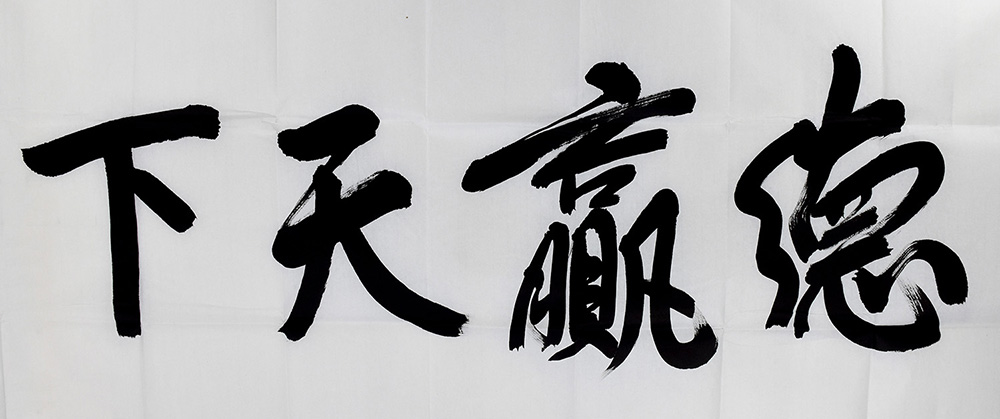 德赢天下